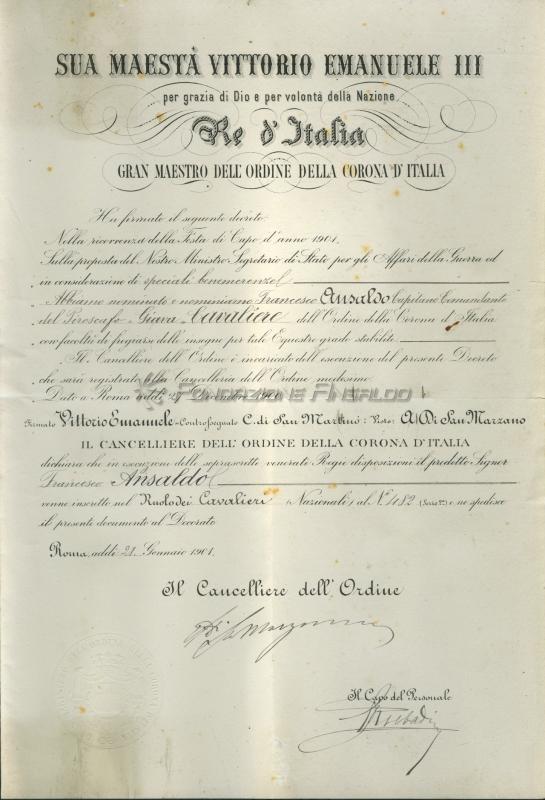 SUA MAESTÀ VITTORIO EMANUELE III
per grazia di Dio e per volontà della Nazione
Re d'Italia
GRAN MAESTRO DELL'ORDINE DELLA CORONA D'ITALIA
Ha firmato il seguente decreto:
Nella ricorrenza della Festa di Capo d'anno 1901.
Sulla proposta del Nostro Ministro Segretario di Stato per gli Affari della Guerra ed
in considerazione di speciali benemerenze
Abbiamo nominato e nominiamo Francesco Ansaldo Capitano Comandante
del Piroscafo Giava Cavaliere dell'Ordine della Corona d'Italia
con facoltà di fregiarsi delle insegne per tale Equestre grado stabilite.
Il Cancelliere dell'Ordine è incaricato dell'esecuzione del presente Decreto
che sarà registrato alla Cancelleria dell'Ordine medesimo.
Dato a Roma addì 27 Decembre 1900
FONDAZIONE ANSALDO
Firmato Vittorio Emanuele - Controssegnato C. di San Martino: Visto: A. Di San Marzano
IL CANCELLIERE DELL'ORDINE DELLA CORONA D'ITALIA
dichiara che in esecuzione delle soprascritte venerate Regie disposizioni il predetto Signor
Francesco Ansaldo
venne inscritto nel Ruolo dei Cavalieri (Nazionali) al N° 1182 e ne spedisce
il presente documento al Decorato
Roma, addì 21 Gennaio 1901.
Il Cancelliere dell'Ordine
Di San Marzano
Il Capo del Personale